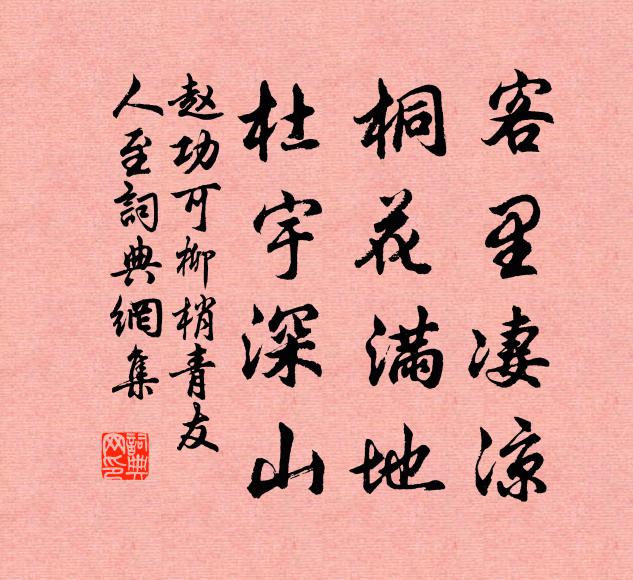 客里凄凉
桐花满地
杜宇深山
赵功可柳梢青友
人至詞典網集
詞典网印